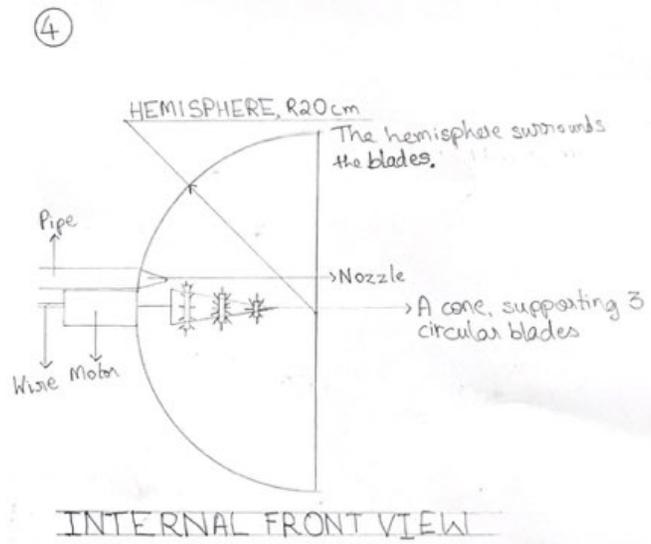 4
HEMISPHERE, R20cm
The hemisphere surrounds
the blades.
Pipe
Nozzle
A cone, supporting 3
circular blades
Wire Motor
INTERNAL FRONT VIEW